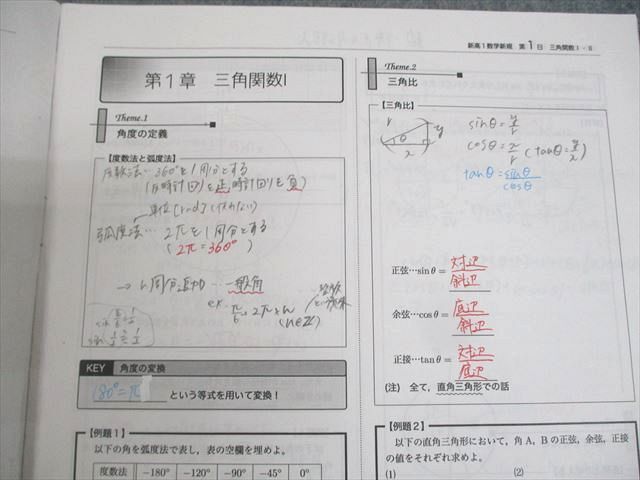 新高1数学新規 第1日 三角関数I・II
第1章 三角関数I
Theme.1
角度の定義
【度数法と弧度法】
度数法… 360°を1周分とする
(反時計回りを正, 時計回りを負)
単位[rad](使わない)
弧度法… 2πを1周分とする
(2π=360°)
→ n周分追加… 一般角
ex. π/6+2π×n
(n∈ℤ)
KEY 角度の変換
180°=π という等式を用いて変換！
【例題1】
以下の角を弧度法で表し，表の空欄を埋めよ。
度数法 −180° −120° −90° −45° 0°
Theme.2
三角比
【三角比】
r y θ x
sinθ=y/r
cosθ=x/r (tanθ=y/x)
tanθ=sinθ/cosθ
正弦…sinθ=対辺/斜辺
余弦…cosθ=底辺/斜辺
正接…tanθ=対辺/底辺
(注) 全て，直角三角形での話
【例題2】
以下の直角三角形において，角A，Bの正弦，余弦，正接
の値をそれぞれ求めよ。
(1) (2)